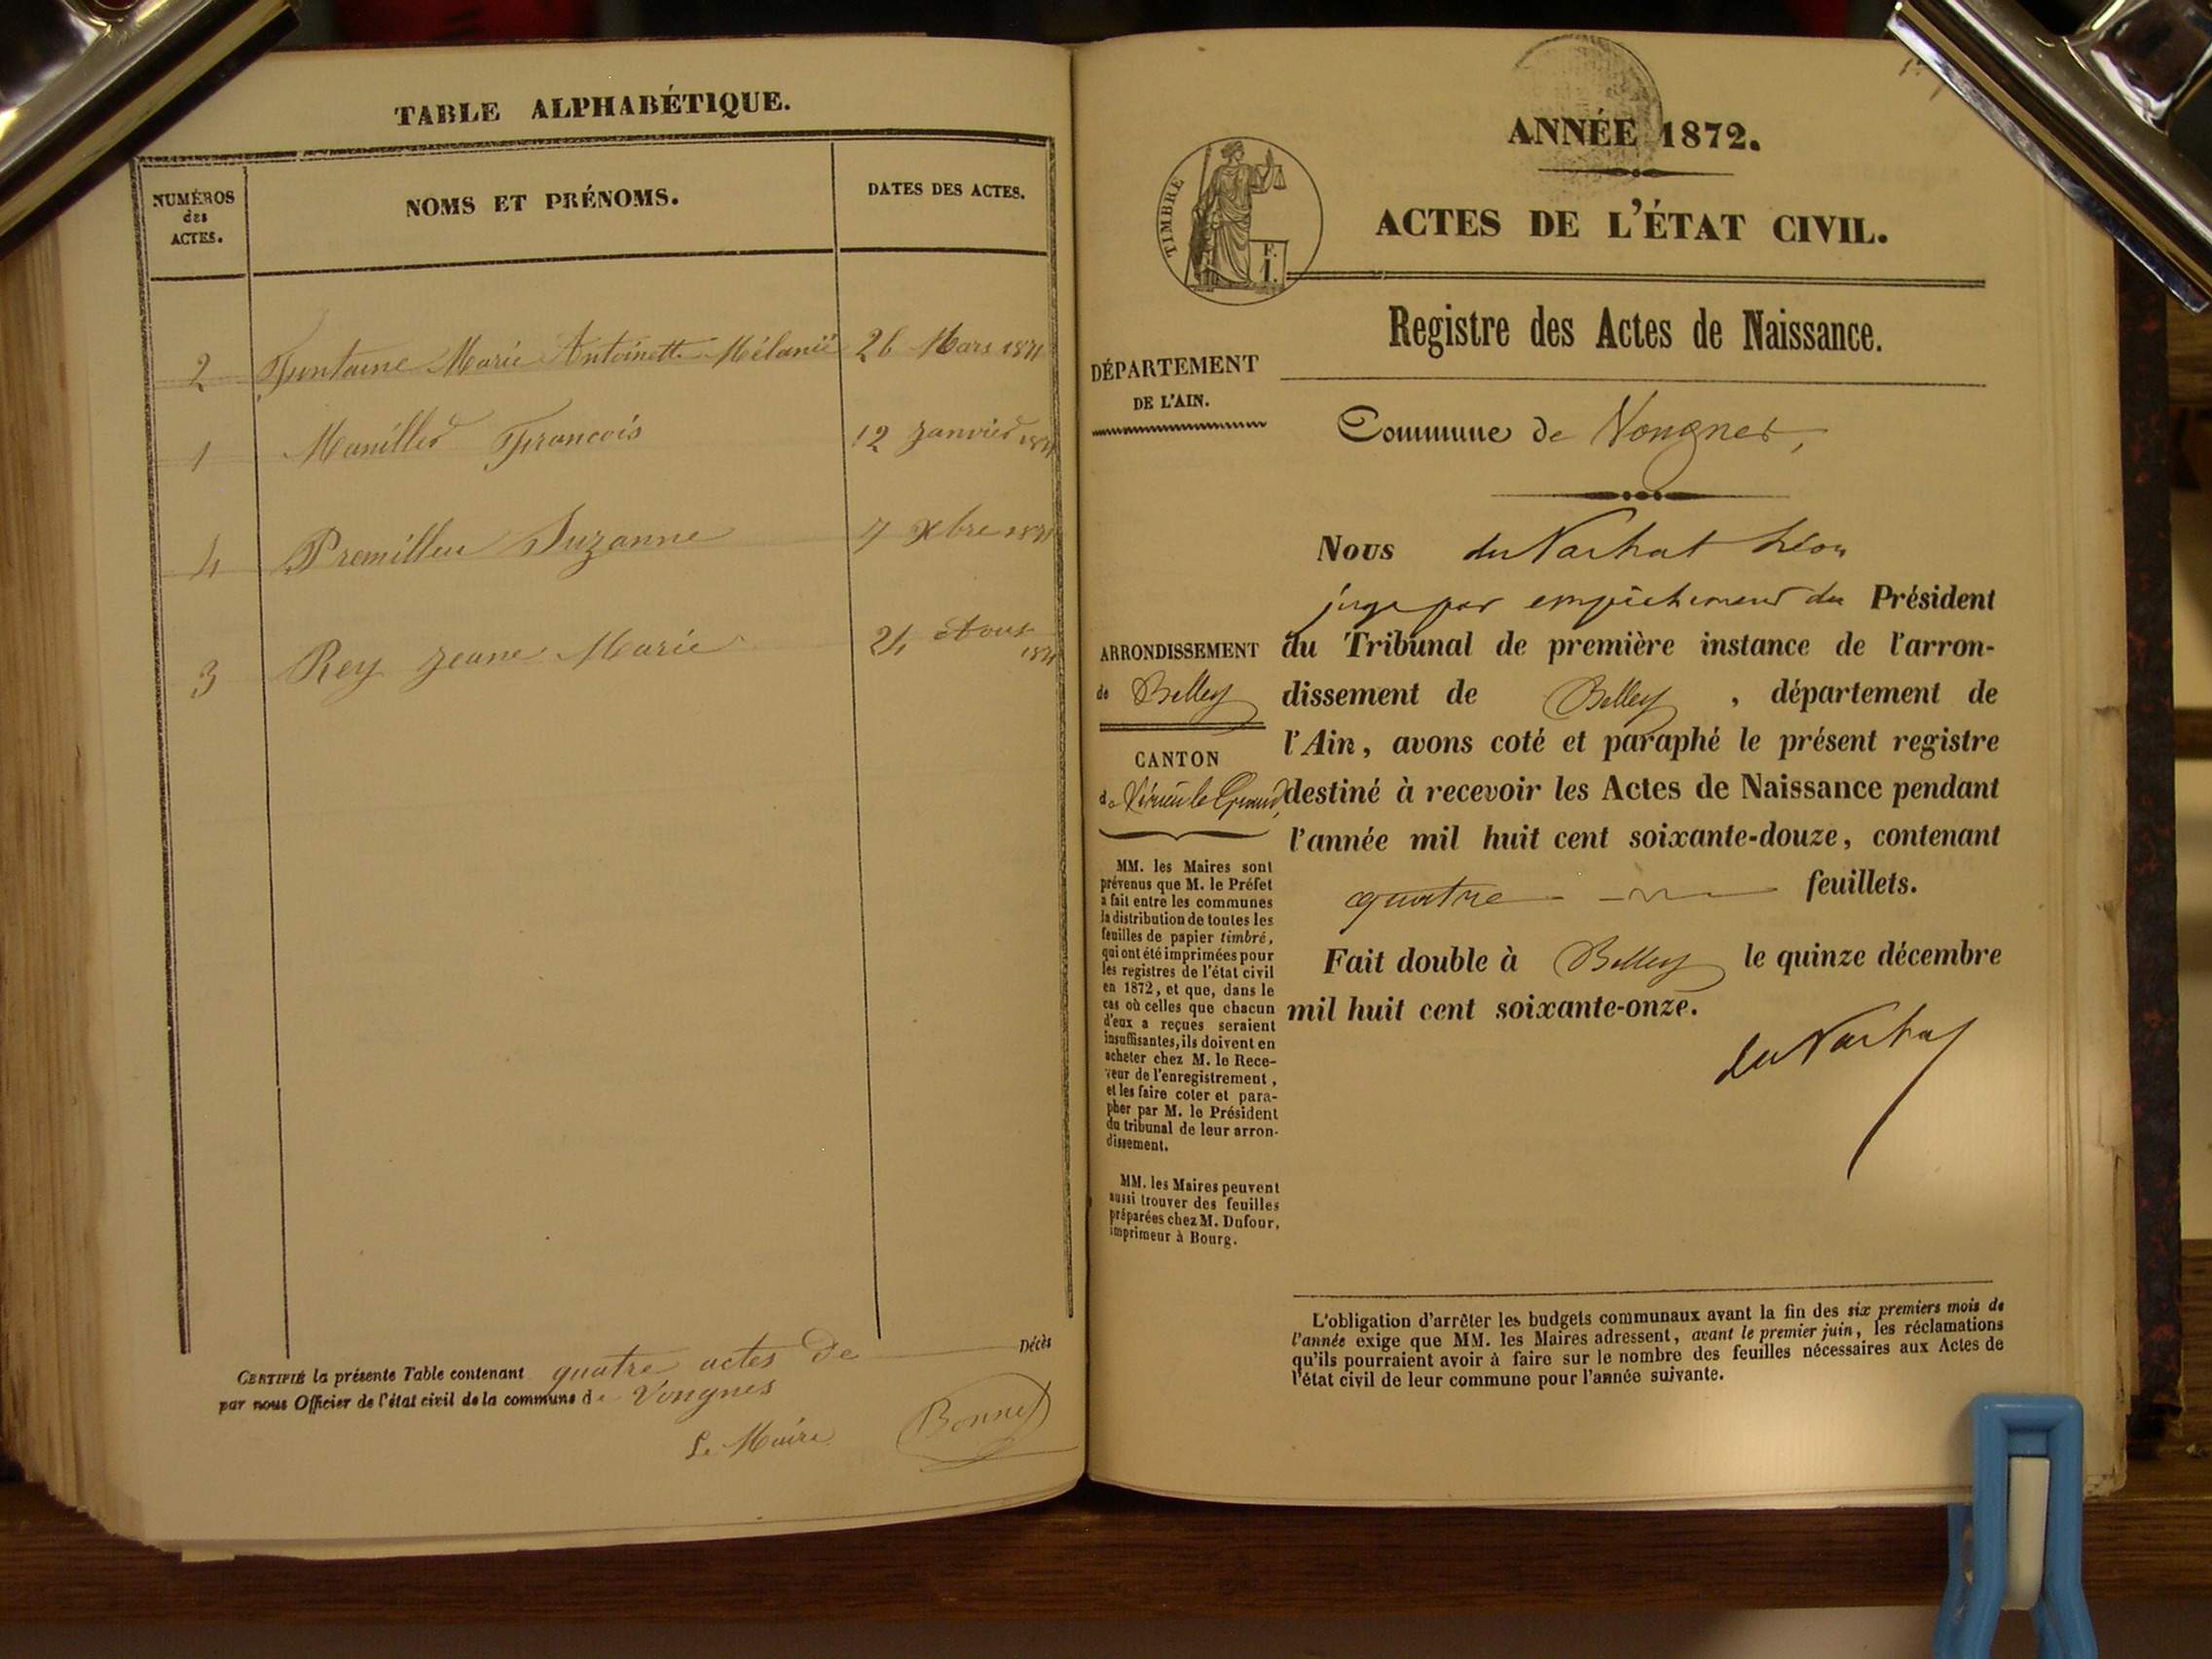 TABLE ALPHABÉTIQUE.
NUMÉROS
des
ACTES.
NOMS ET PRÉNOMS.
DATES DES ACTES.
2 Fontaine Marie Antoinette Mélanie 26 Mars 1871
1 Manillier François 12 Janvier 1871
4 Premillieu Suzanne 7 Xbre 1871
3 Rey Jeane Marie 24 Aout
1871
CERTIFIÉ la présente Table contenant quatre actes de Décès
par nous Officier de l'état civil de la commune de Vongnes
Le Maire Bonnet
ANNÉE 1872.
TIMBRE
ACTES DE L'ÉTAT CIVIL.
Registre des Actes de Naissance.
DÉPARTEMENT
DE L'AIN.
Commune de Vongnes,
ARRONDISSEMENT
de Belley
CANTON
de Virieu le Grand,
MM. les Maires sont
prévenus que M. le Préfet
a fait entre les communes
la distribution de toutes les
feuilles de papier timbré,
qui ont été imprimées pour
les registres de l'état civil
en 1872, et que, dans le
cas où celles que chacun
d'eux a reçues seraient
insuffisantes, ils doivent en
acheter chez M. le Rece-
veur de l'enregistrement,
et les faire coter et para-
pher par M. le Président
du tribunal de leur arron-
dissement.
MM. les Maires peuvent
aussi trouver des feuilles
préparées chez M. Dufour,
imprimeur à Bourg.
Nous du Vachat Léon
juge par empêchement du Président
du Tribunal de première instance de l'arron-
dissement de Belley, département de
l'Ain, avons coté et paraphé le présent registre
destiné à recevoir les Actes de Naissance pendant
l'année mil huit cent soixante-douze, contenant
quatre feuillets.
Fait double à Belley le quinze décembre
mil huit cent soixante-onze.
du Vachat
L'obligation d'arrêter les budgets communaux avant la fin des six premiers mois de
l'année exige que MM. les Maires adressent, avant le premier juin, les réclamations
qu'ils pourraient avoir à faire sur le nombre des feuilles nécessaires aux Actes de
l'état civil de leur commune pour l'année suivante.